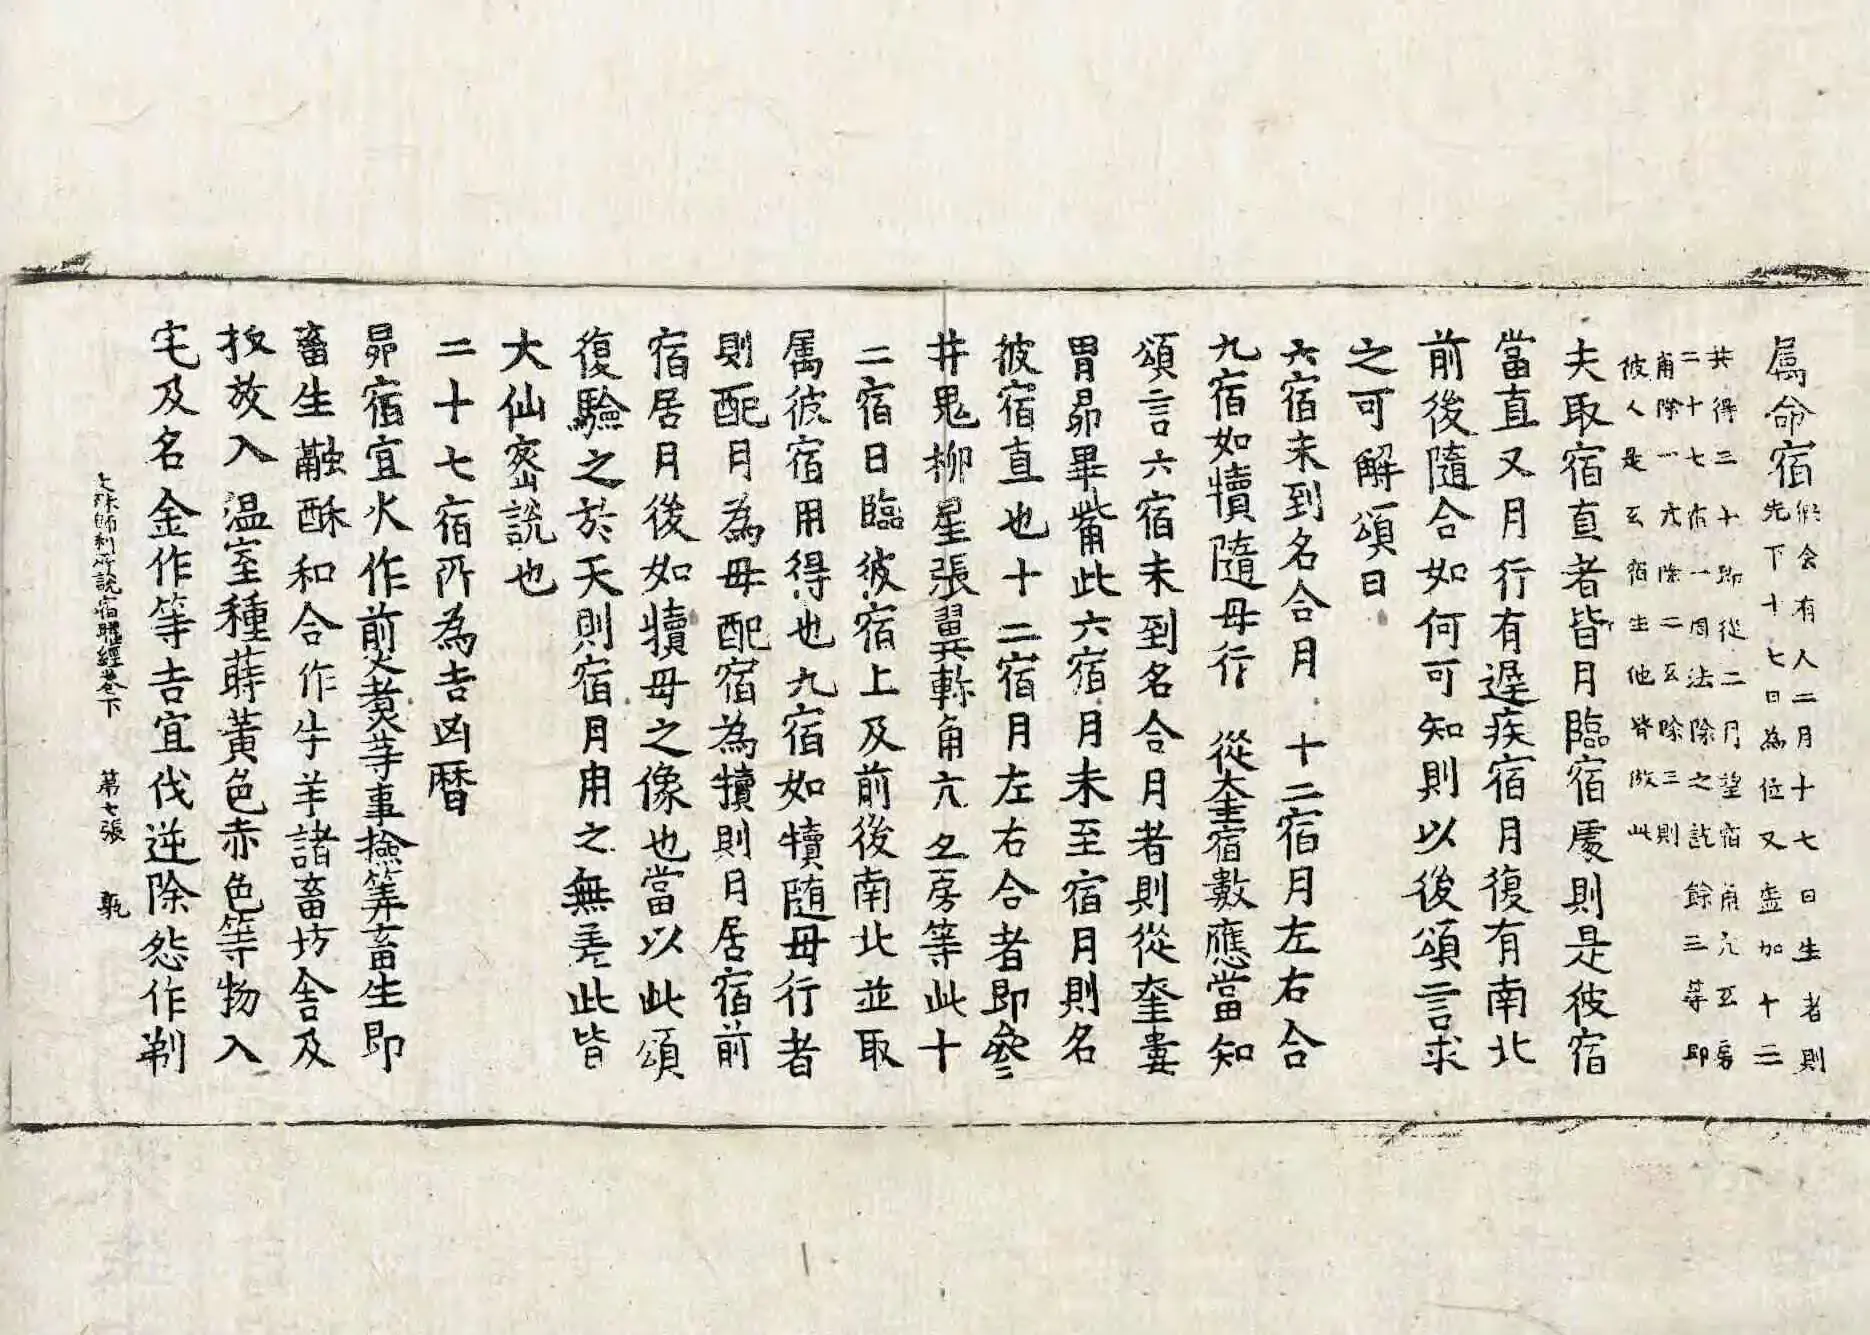 属命宿
假令有人二月十七日生者則
先下十七日為位又虛加十三
共得三十即從二月望宿角亢氐房
二十七亦一周法除之訖餘三等即
角除一亢除二氐除三則
彼人是氐宿生他皆倣此
夫取宿直者皆月臨宿處則是彼宿
當直又月行有遲疾宿月復有南北
前後隨合如何可知則以後頌言求
之可解頌曰
六宿未到名合月 十二宿月左右合
九宿如犢隨母行 從奎宿數應當知
頌言六宿未到名合月者則從奎婁
胃昴畢觜此六宿月未至宿月則名
彼宿直也十二宿月左右合者即參
井鬼柳星張翼軫角亢氐房等此十
二宿日臨彼宿上及前後南北並取
属彼宿用得也九宿如犢隨母行者
則配月為母配宿為犢則月居宿前
宿居月後如犢母之像也當以此頌
復驗之於天則宿月用之無差此皆
大仙密說也
二十七宿所為吉凶曆
昴宿宜火作煎煑等事撿筭畜生即
畜生融酥和合作牛羊諸畜坊舍及
放入溫室種蒔黃色赤色等物入
宅及名金作等吉宜伐逆除怨作剃
文殊師利所說宿曜經卷下 第七張